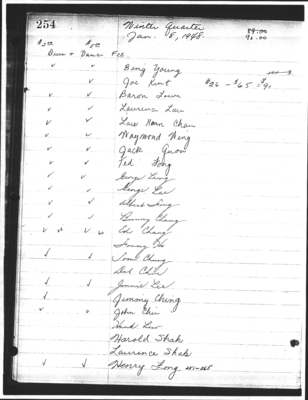 254
Winter Quarter
Jan. 8, 1948.
89.00
91.00
Dues + Dance Fee.
Bing Young
Joe Kint $26 - $65 - $91
Baron Louie
Laurence Law
Law Horn Chan
Waymond Wong
Jack Quon
Ted Fong
George Leong
George Lee
Albert Fong
Benny Chang
Ed Chang
Tommy
Tom Ching
Dal Chin
Jennie Lee
Jimmy Ching
John Chin
Hank Law
Harold Shak
Laurence Shak
Henry Fong